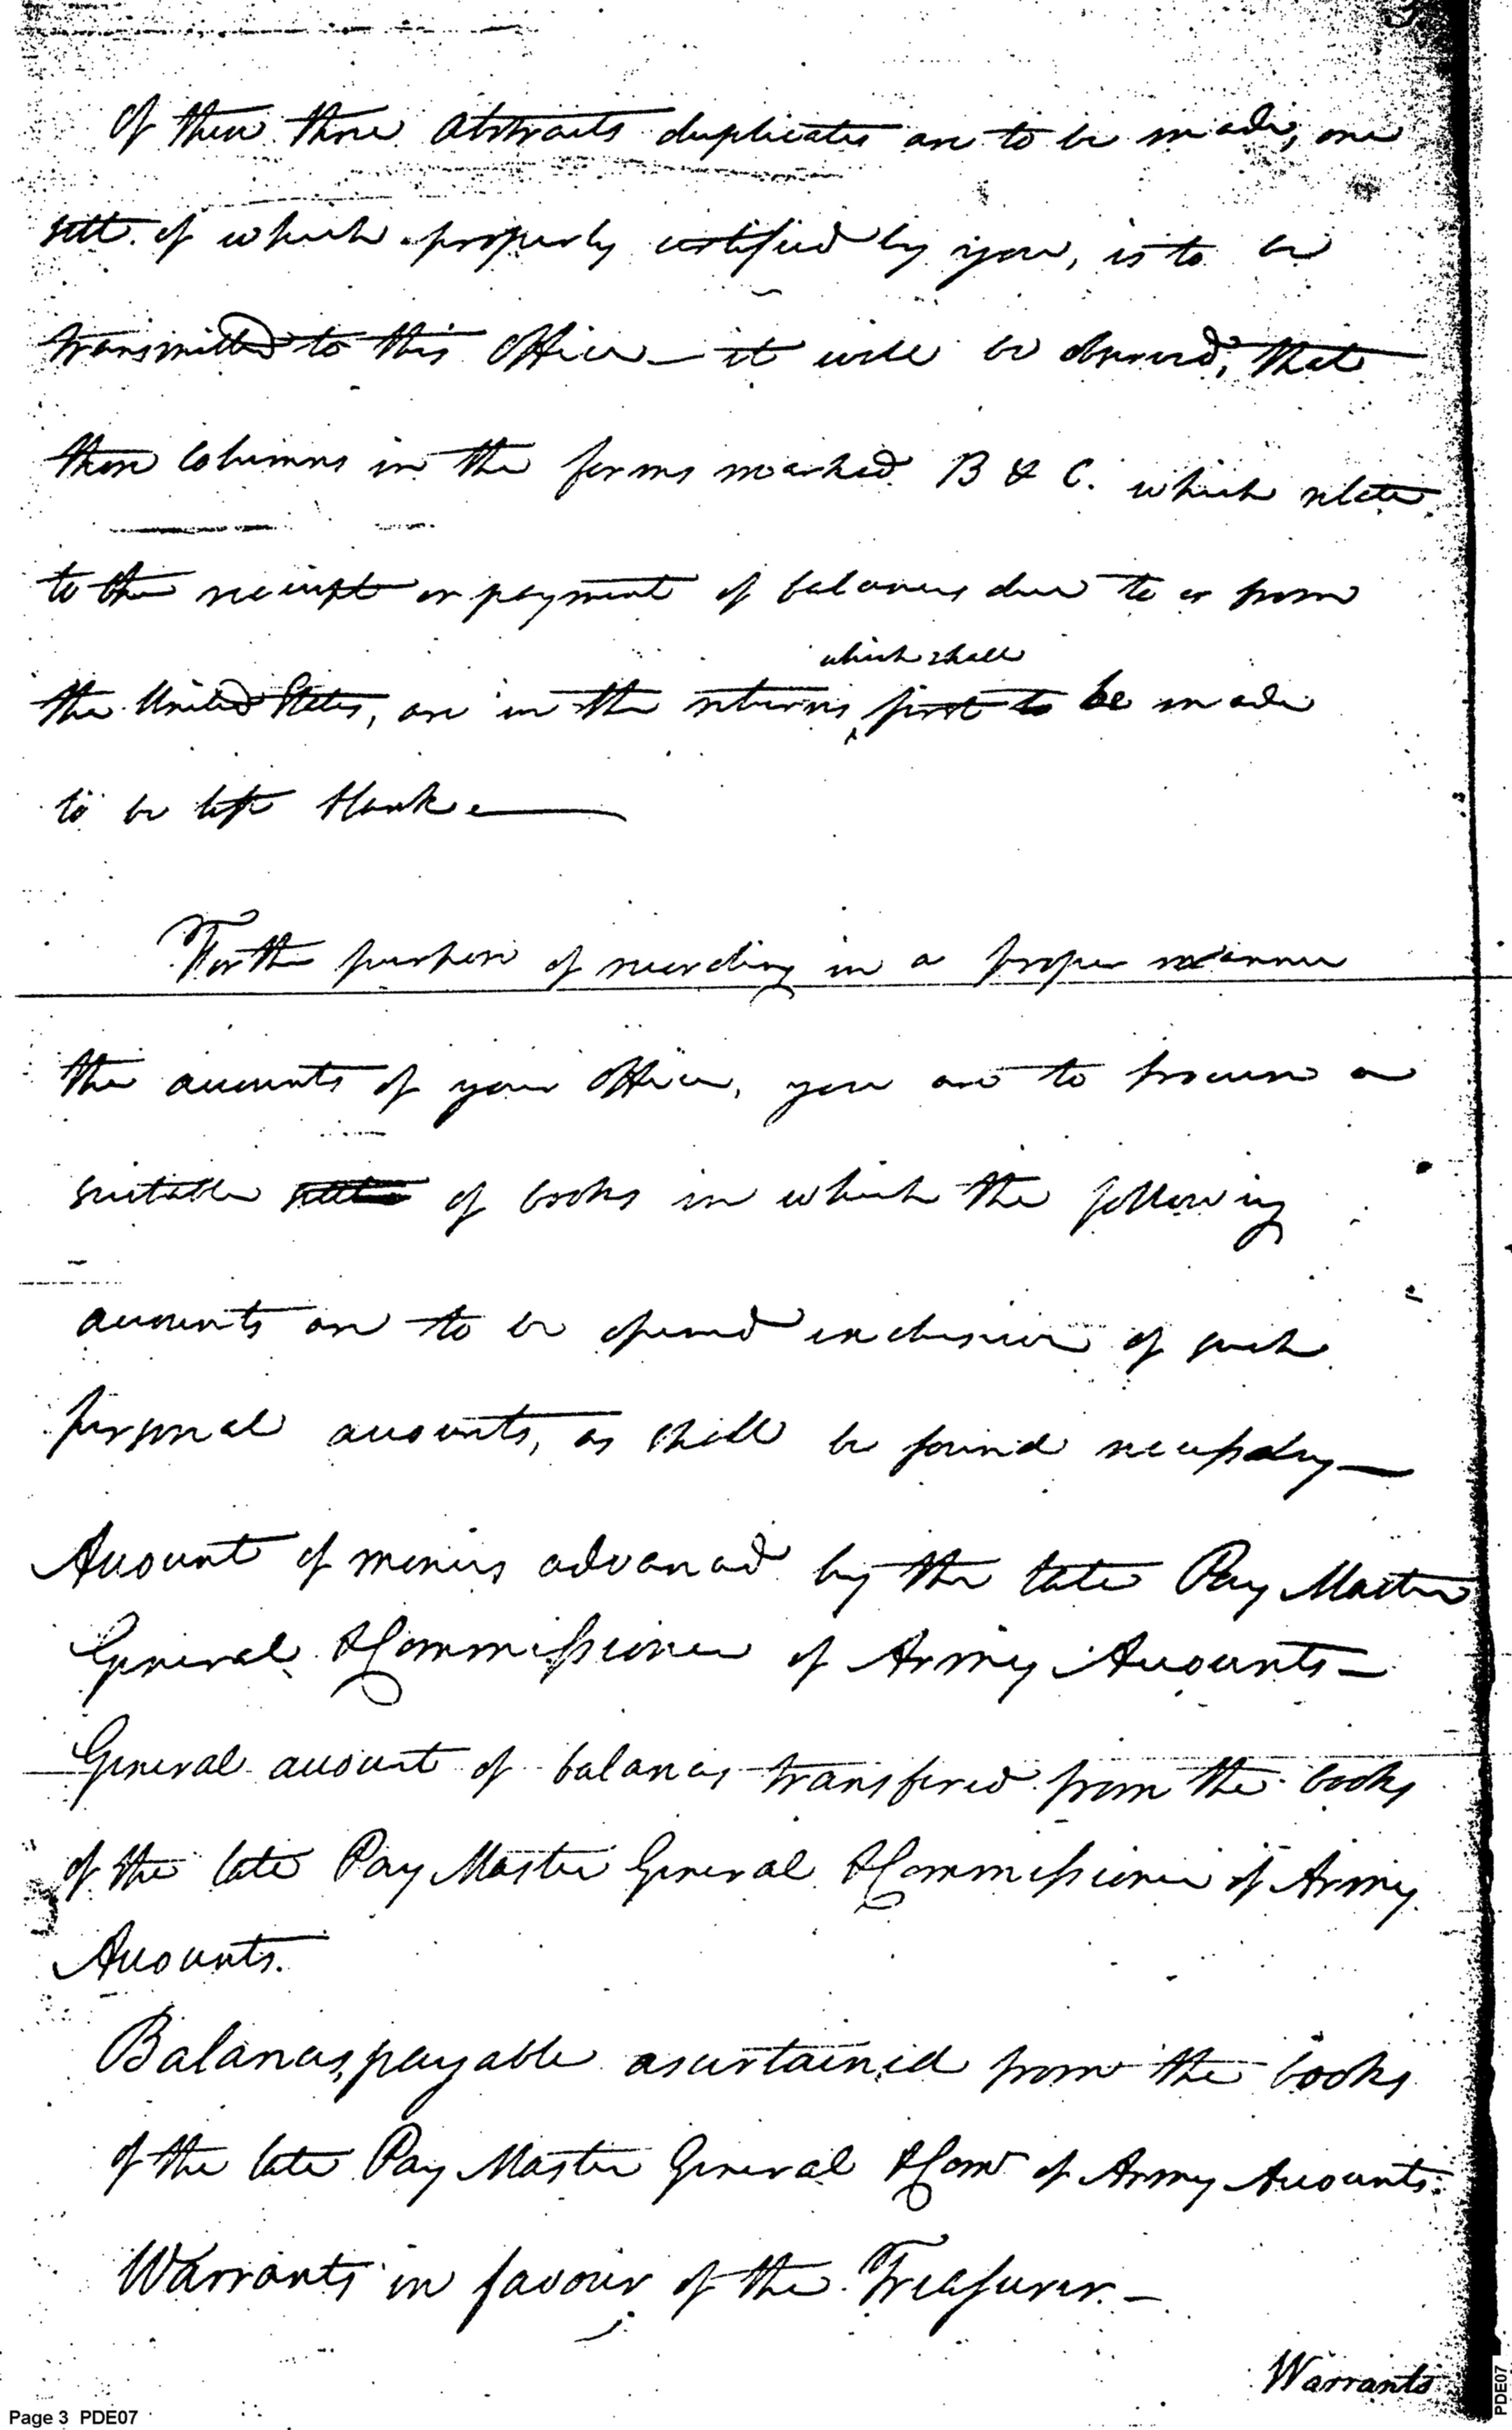 Of these three Abstracts duplicates are to be made, one
sett of which properly certified by you, is to be
transmitted to this Office — it will be observed, that
those Columns in the forms marked B & C. which relate
to the receipt or payment of balances due to or from
which shall
the United States, are in the returns first to be made
to be left blank
For the purpose of recording in a proper manner
the accounts of your Office, you are to procure a
suitable sett of books in which the following
accounts are to be opened exclusive of such
personal accounts, as shall be found necessary —
Account of monies advanced by the late Pay Master
General & Commissioner of Army Accounts —
General account of balances transfered from the books
of the late Pay Master General & Commissioner of Army
Accounts.
Balances payable ascertained from the books
of the late Pay Master General & Comr of Army Accounts.
Warrants in favour of the Treasurer. —
Warrants
Page 3 PDE07
PDE07